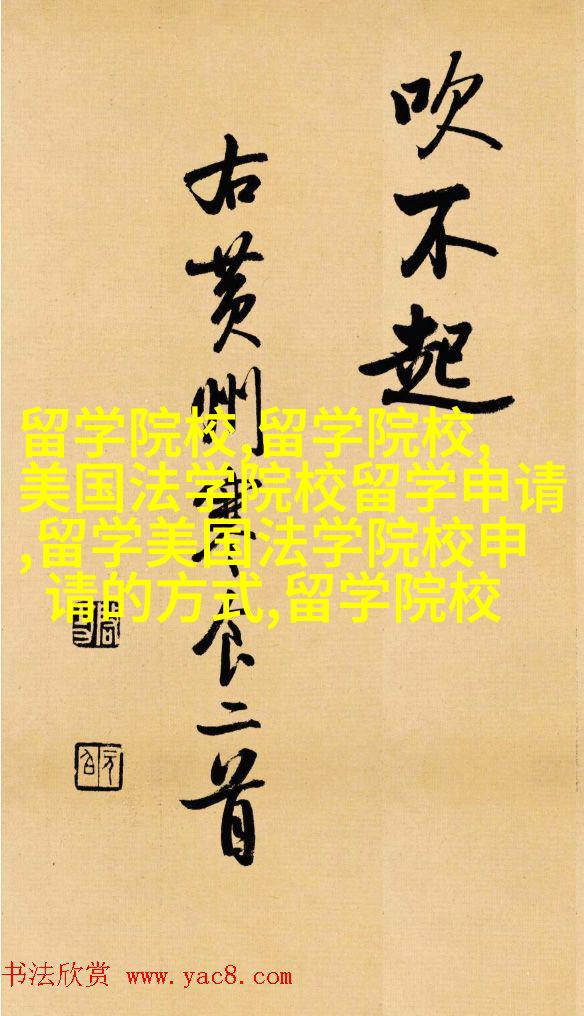 吹不起
右黄州寒食二首
留学院校,留学院校,
美国法学院校留学申请
,留学美国法学院校申
请的方式,留学院校
书法欣赏 www.yac8.com